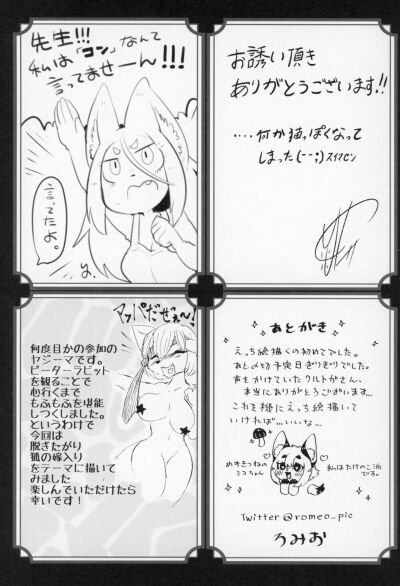 先生!!!
私は「コン」なんて
言ってませーん!!!
言ってたよ。
お誘い頂き
ありがとうございます!!
....何か猫っぽくなって
しまった(--;)スイマセン
マッパだぜぇ〜!
何度目かの参加の
ヤジーマです。
ピーターラビット
を観ることで
心行くまで
もふもふを堪能
しつくしました。
というわけで
今回は
脱ぎたがり
狐の嫁入り
をテーマに描いて
みました
楽しんでいただけたら
幸いです!
あとがき
えっち絵描くの初めてでした。
あと〆切予定日ぎりぎりでした。
声をかけていたクルトガさん、
本当にありがとうございます…
これを機にえっち絵描いて
いければ…いいな…
めすきつねの
ミコちゃん
私はたけのこ派
でる。
Twitter @romeo_pic
ろみお